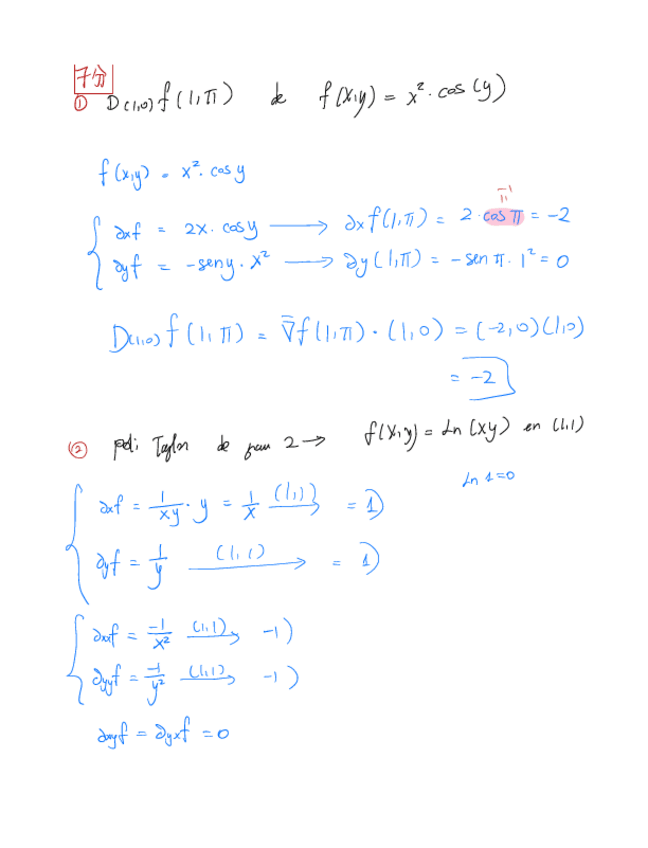 7分
① D(1,0) f(1,π) de f(x,y) = x². cos(y)
f(x,y) = x². cos y
-1
∂xf = 2x. cos y → ∂xf(1,π) = 2·cos π = -2
∂yf = -sen y. x² → ∂y(1,π) = -sen π. 1² = 0
D(1,0) f(1,π) = ∇̄f(1,π)·(1,0) = (-2,0)(1,0)
= -2
② poli Taylor de grau 2 → f(x,y) = Ln(xy) en (1,1)
Ln 1=0
∂xf = 1/xy · y = 1/x (1,1)→ = 1)
∂yf = 1/y (1,1)→ = 1)
∂xxf = -1/x² (1,1)→ -1)
∂yyf = -1/y² (1,1)→ -1)
∂xyf = ∂yxf = 0